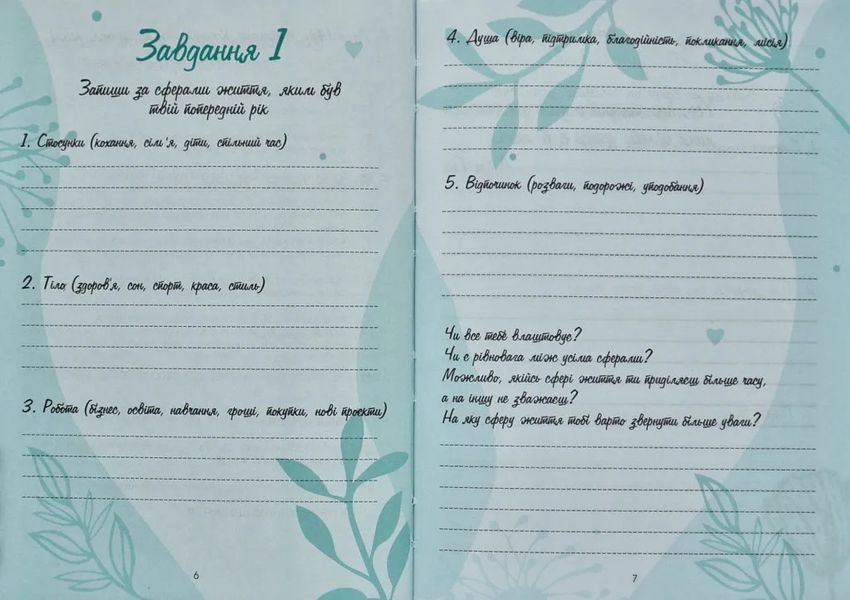 Завдання 1
Запиши за сферами життя, яким був
твій попередній рік
1. Стосунки (кохання, сім'я, діти, спільний час)
2. Тіло (здоров'я, сон, спорт, краса, стиль)
3. Робота (бізнес, освіта, навчання, гроші, покупки, нові проєкти)
6
4. Душа (віра, підтримка, благодійність, покликання, місія)
5. Відпочинок (розваги, подорожі, уподобання)
Чи все тебе влаштовує?
Чи є рівновага між усіма сферами?
Можливо, якійсь сфері життя ти приділяєш більше часу,
а на іншу не зважаєш?
На яку сферу життя тобі варто звернути більше уваги?
7